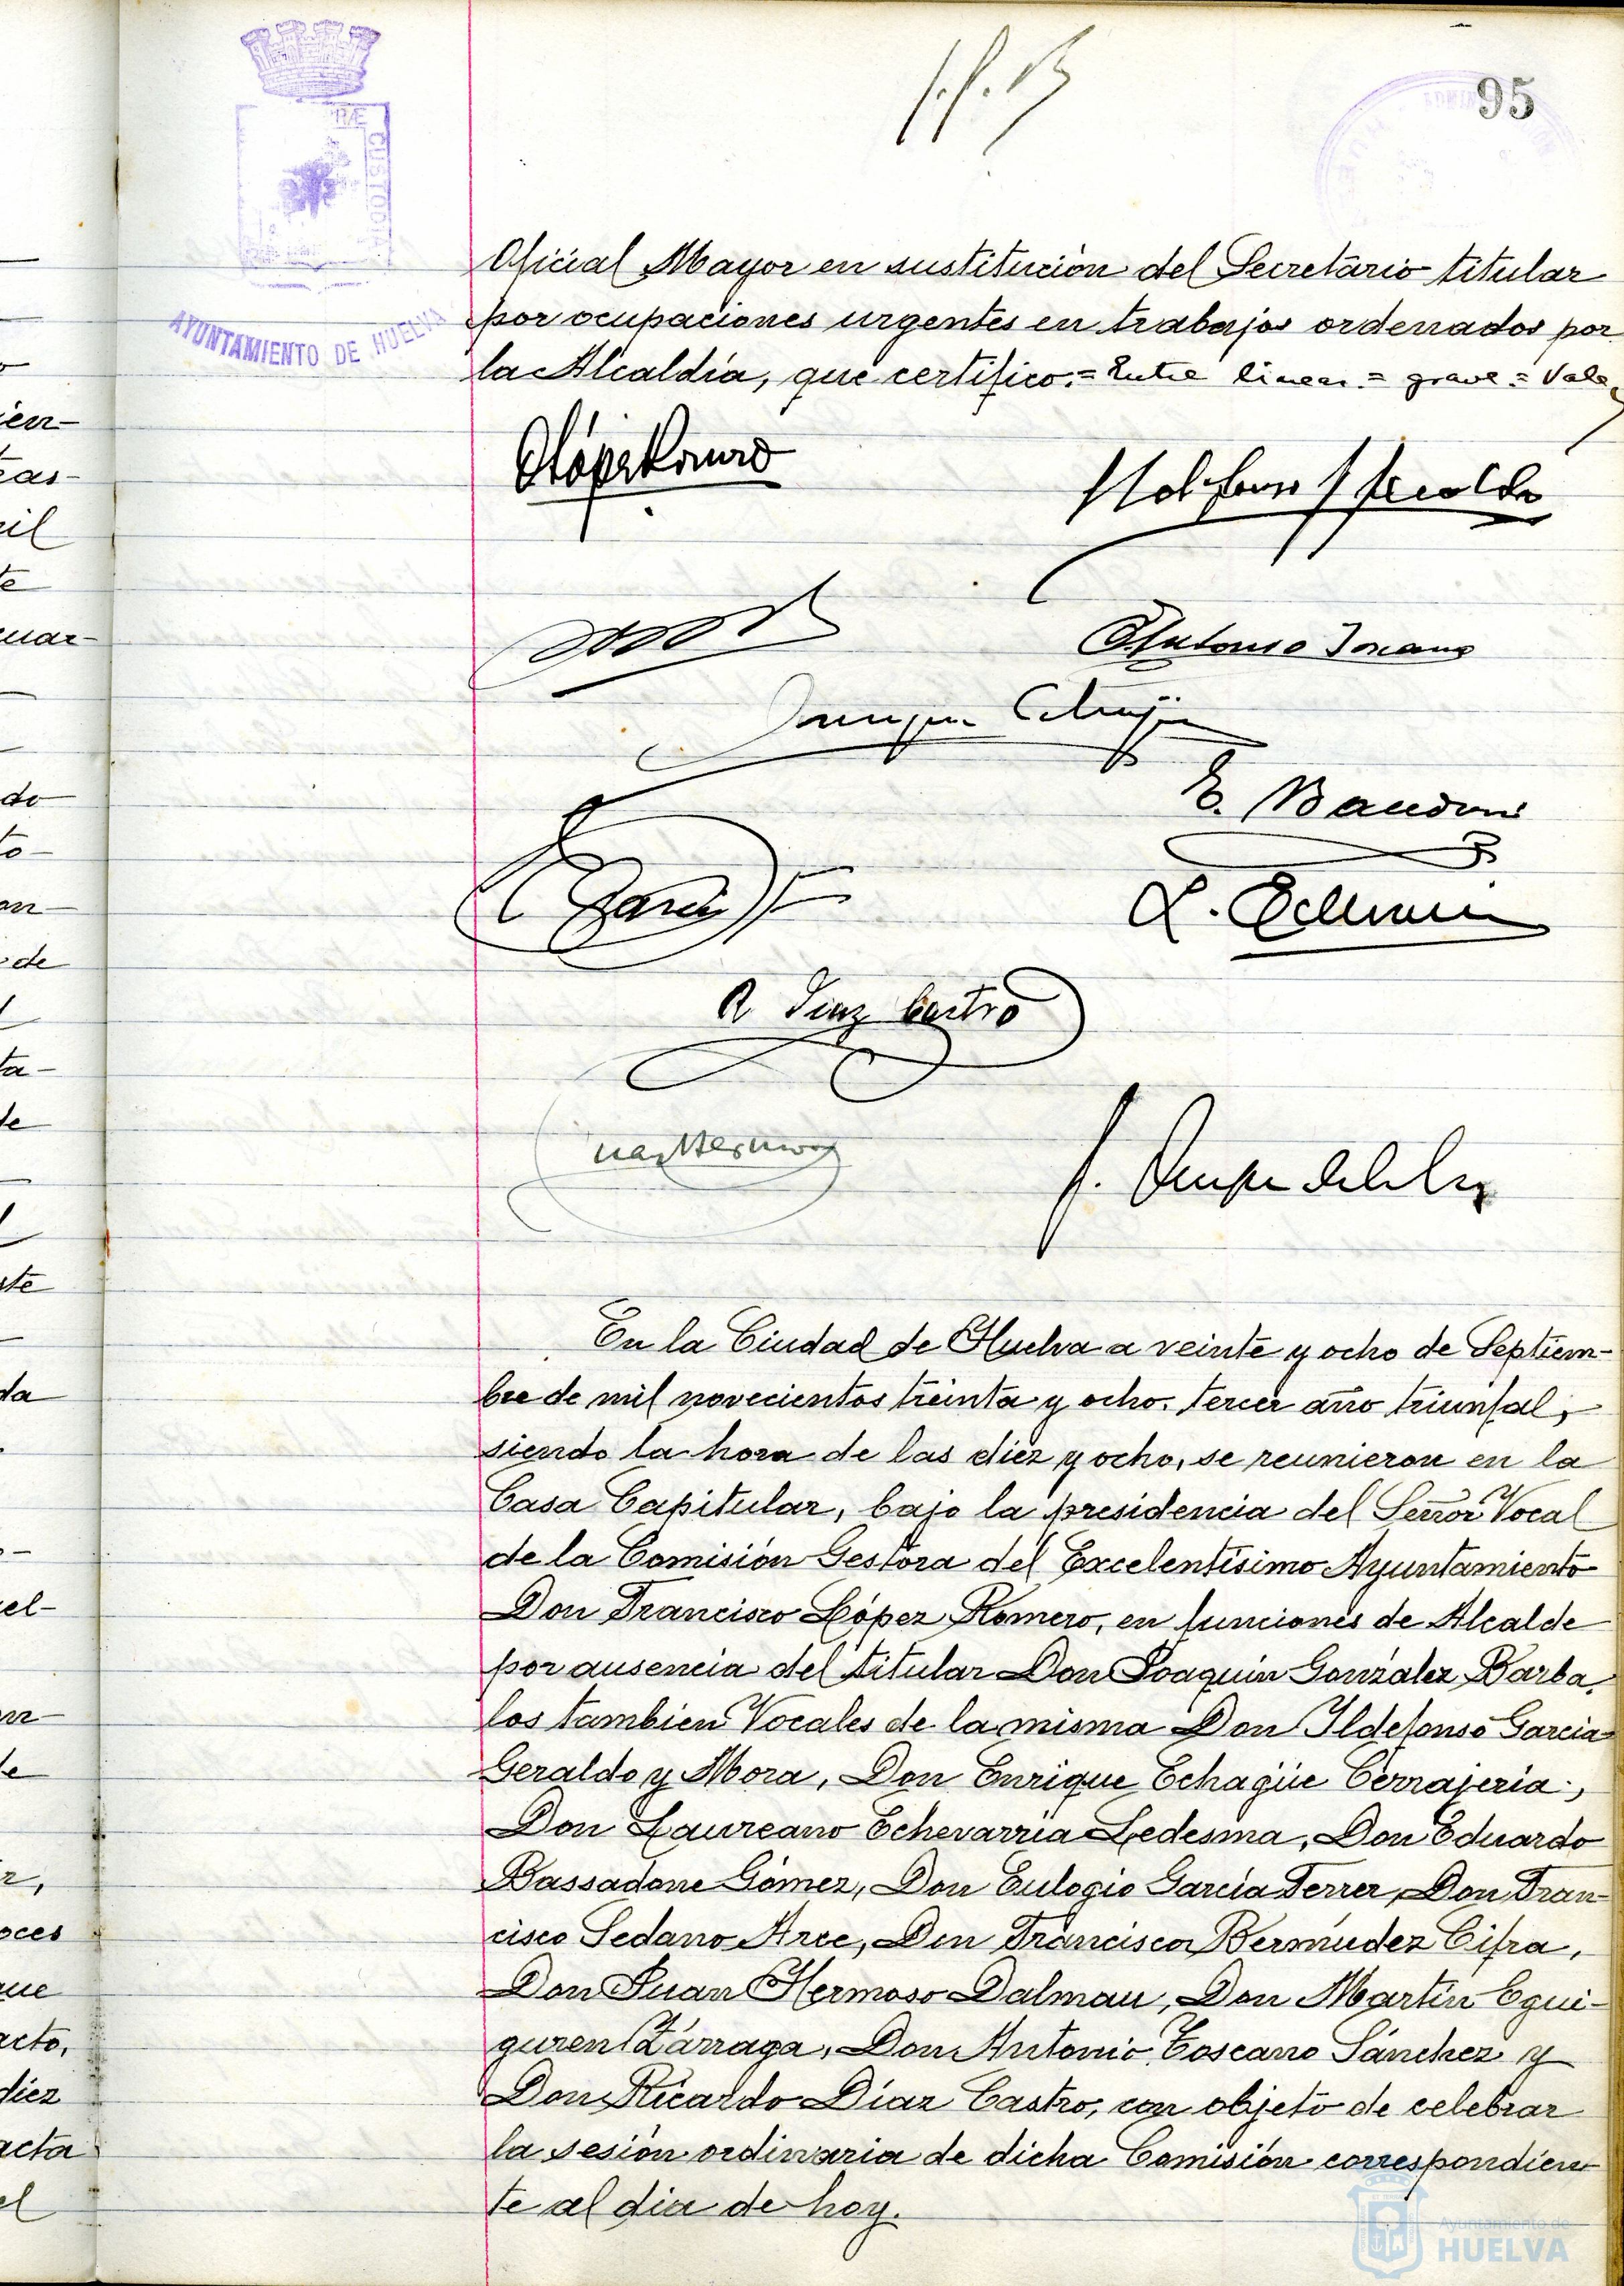 95
RÆ
CUSTODIA
AYUNTAMIENTO DE HUELVA
Oficial Mayor en sustitución del Secretario titular
por ocupaciones urgentes en trabajos ordenados por
la Alcaldía, que certifico.= Entre lineas.= grave.= Vale
E. Bassadone
L. Echevarria
R Diaz Castro
En la Ciudad de Huelva a veinte y ocho de Septiem-
bre de mil novecientos treinta y ocho. tercer año triunfal,
siendo la hora de las diez y ocho, se reunieron en la
Casa Capitular, bajo la presidencia del Señor Vocal
de la Comisión Gestora del Excelentísimo Ayuntamiento
Don Francisco López Romero, en funciones de Alcalde
por ausencia del titular Don Joaquín González Barba,
los tambien Vocales de la misma Don Ildefonso Garcia-
Geraldo y Mora, Don Enrique Echagüe Cerrajería,
Don Laureano Echevarría Ledesma, Don Eduardo
Bassadone Gómez, Don Eulogio García Ferrer, Don Fran-
cisco Sedano Arce, Don Francisco Bermúdez Cifra,
Don Juan Hermoso Dalmau, Don Martín Egui-
guren Zárraga, Don Antonio Toscano Sánchez y
Don Ricardo Díaz Castro, con objeto de celebrar
la sesión ordinaria de dicha Comisión correspondien-
te al dia de hoy.
Ayuntamiento de
HUELVA